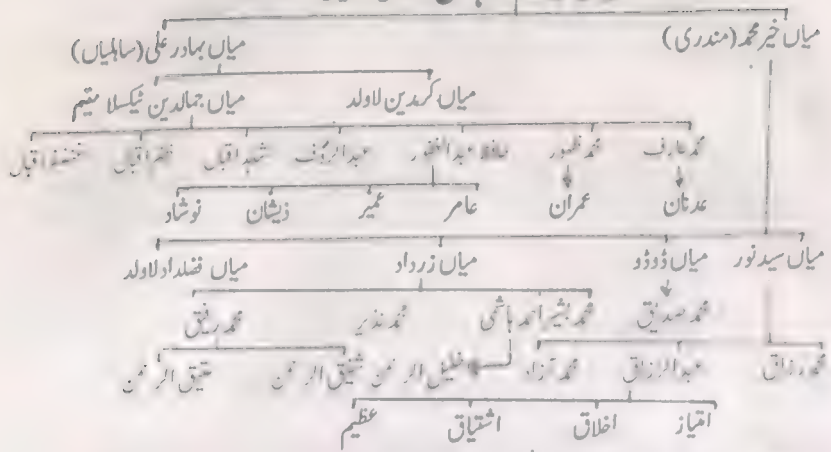 میاں خیر محمد (مندری) میاں بہادر علی (ساہلیاں)
میاں کرمدین لاولد میاں جمالدین ٹیکسلا مقیم
محمد عارف محمد ظہور حافظ عبدالغفور عبدالرؤف شاہد اقبال ظفر اقبال غضنفر اقبال
عدنان عمران عامر عمیر ذیشان نوشاد
میاں سید نور میاں ڈوڈو میاں زرداد میاں فضلداد لاولد
محمد صدیق محمد بشیر احمد ہاشمی محمد نذیر محمد رفیق
محمد رزاق عبدالرزاق محمد آزاد خلیل الرحمن شفیق الرحمن عتیق الرحمن
امتیاز اخلاق اشتیاق عظیم